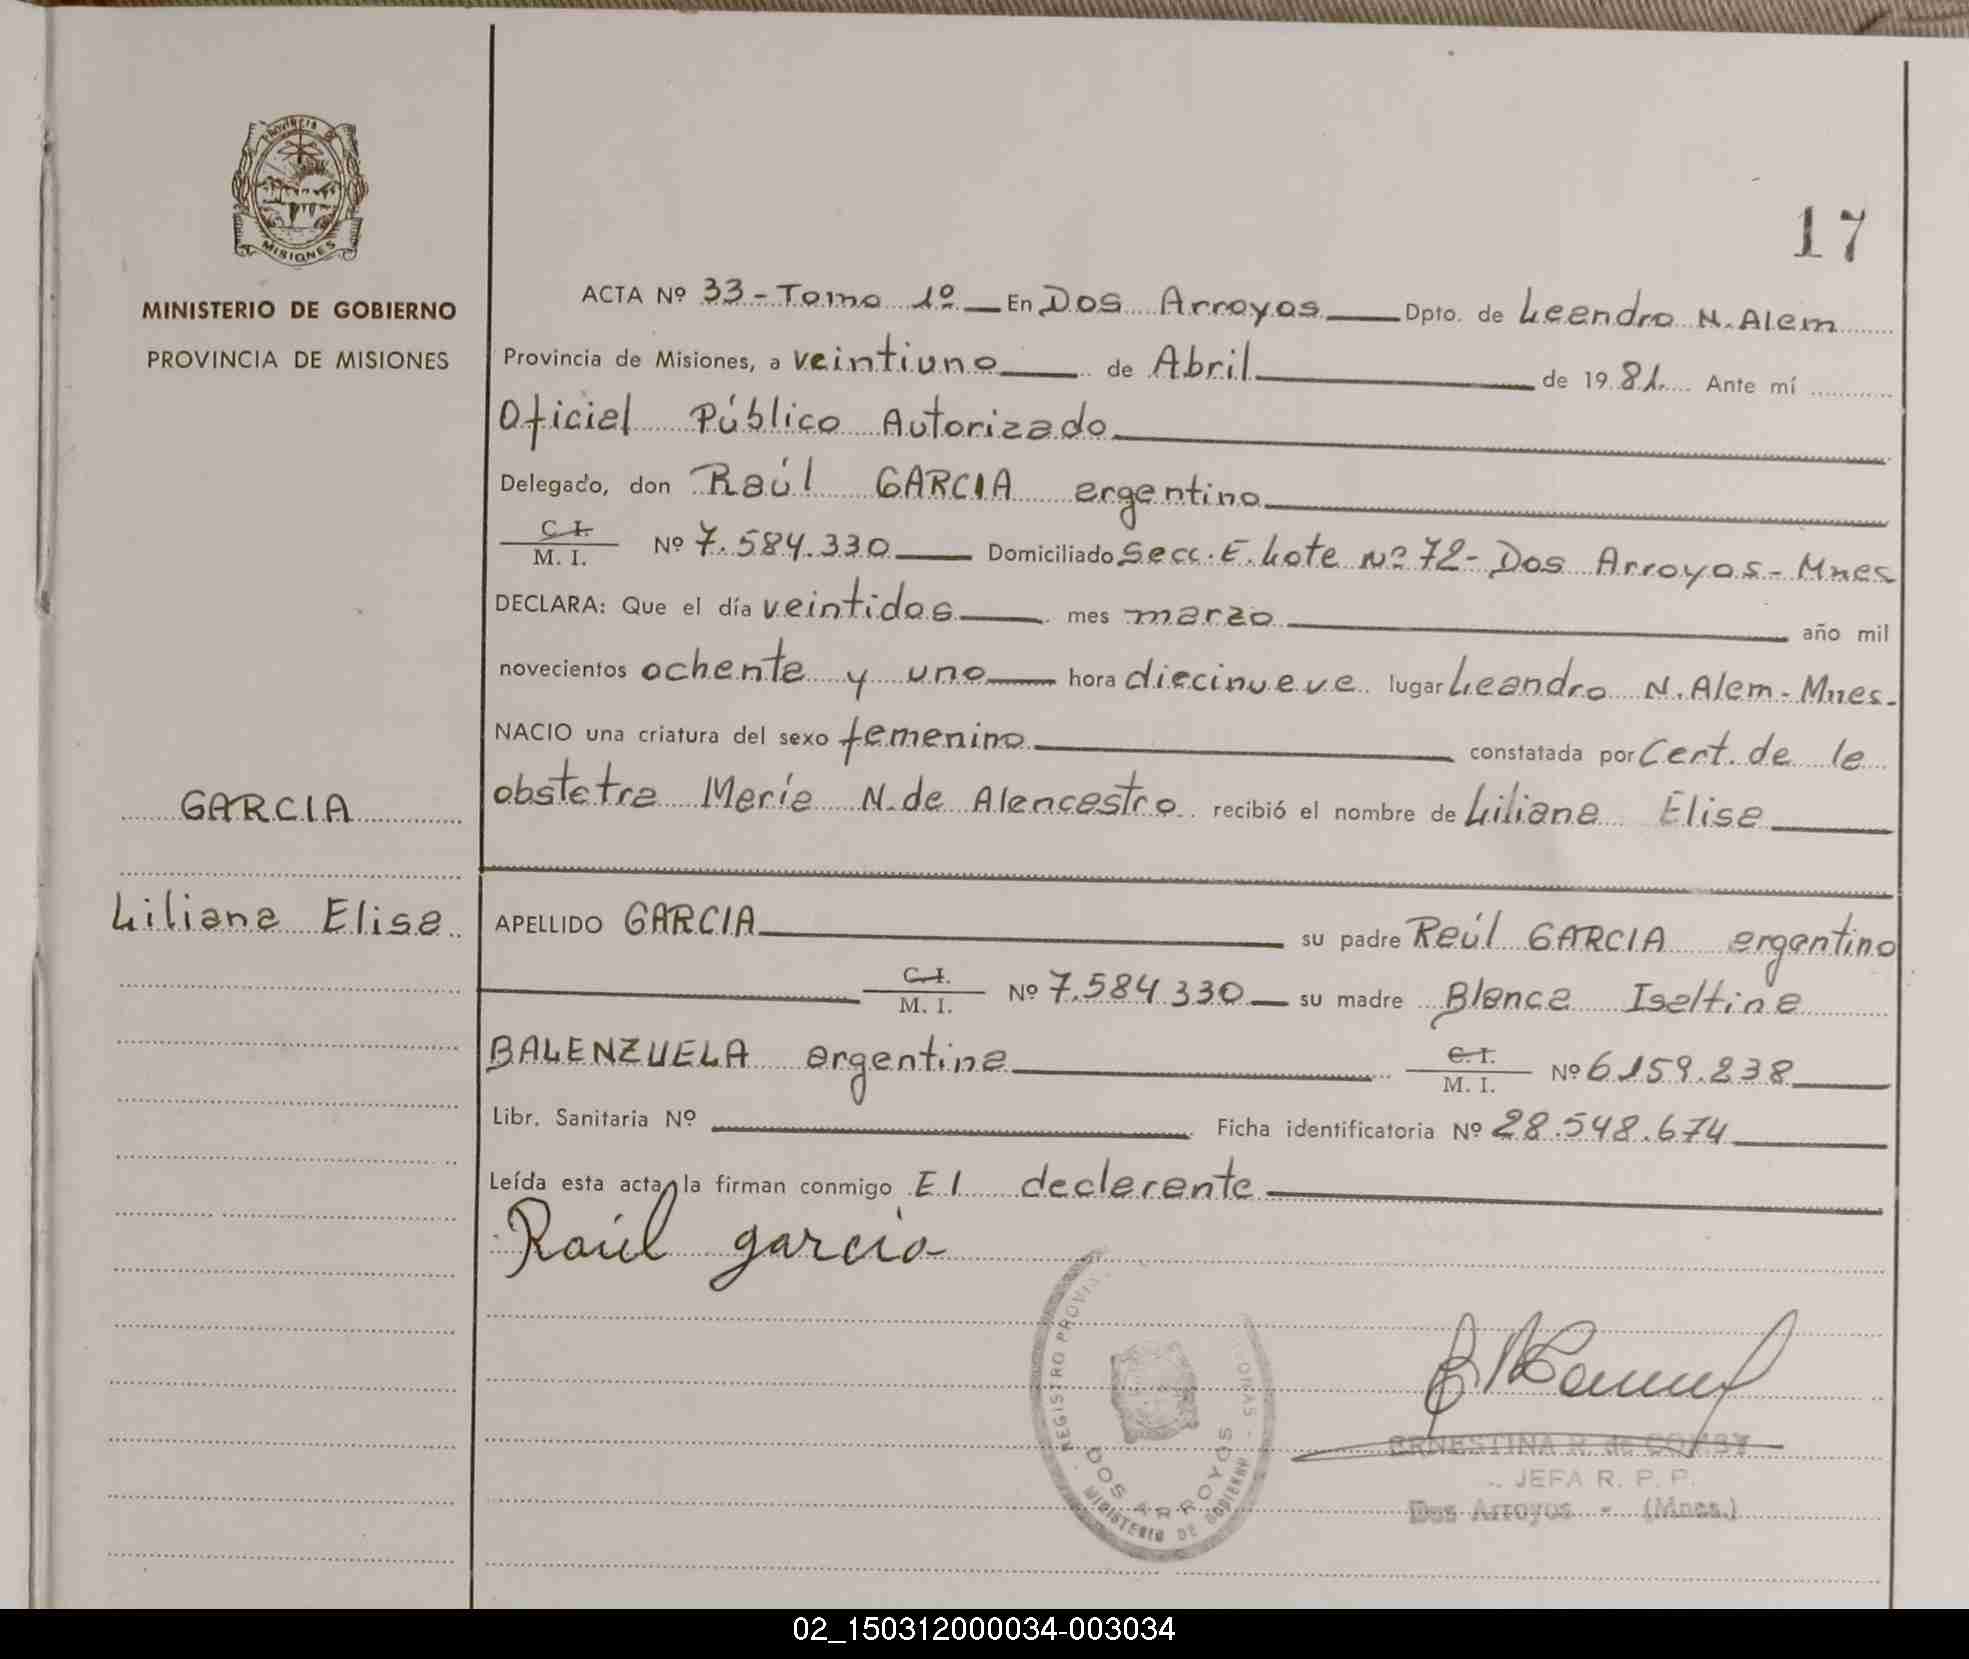 PROVINCIA DE
MISIONES
MINISTERIO DE GOBIERNO
PROVINCIA DE MISIONES
GARCIA
Liliana Elisa
17
ACTA Nº 33 - Tomo 1º En Dos Arroyos Dpto. de Leandro N. Alem
Provincia de Misiones, a veintiuno de Abril de 1981. Ante mí
Oficial Público Autorizado
Delegado, don Raúl GARCIA argentino
C. I.
M. I. Nº 7.584.330 Domiciliado Secc. E. Lote Nº 72 - Dos Arroyos - Mnes
DECLARA: Que el día veintidos mes marzo año mil
novecientos ochenta y uno hora diecinueve lugar Leandro N. Alem - Mnes.
NACIO una criatura del sexo femenino constatada por Cert. de la
obstetra María N. de Alencastro recibió el nombre de Liliana Elisa
APELLIDO GARCIA su padre Raúl GARCIA argentino
C. I.
M. I. Nº 7.584.330 su madre Blanca Iseltina
BALENZUELA argentina C. I.
M. I. Nº 6.159.238
Libr. Sanitaria Nº Ficha identificatoria Nº 28.548.674
Leída esta acta, la firman conmigo El declarante
Raúl garcia
REGISTRO PROVIN
DOS ARROYOS
MINISTERIO DE GOBIERNO
ERNESTINA R. de COMBY
JEFA R. P. P.
Dos Arroyos - (Mnes.)
02_150312000034-003034